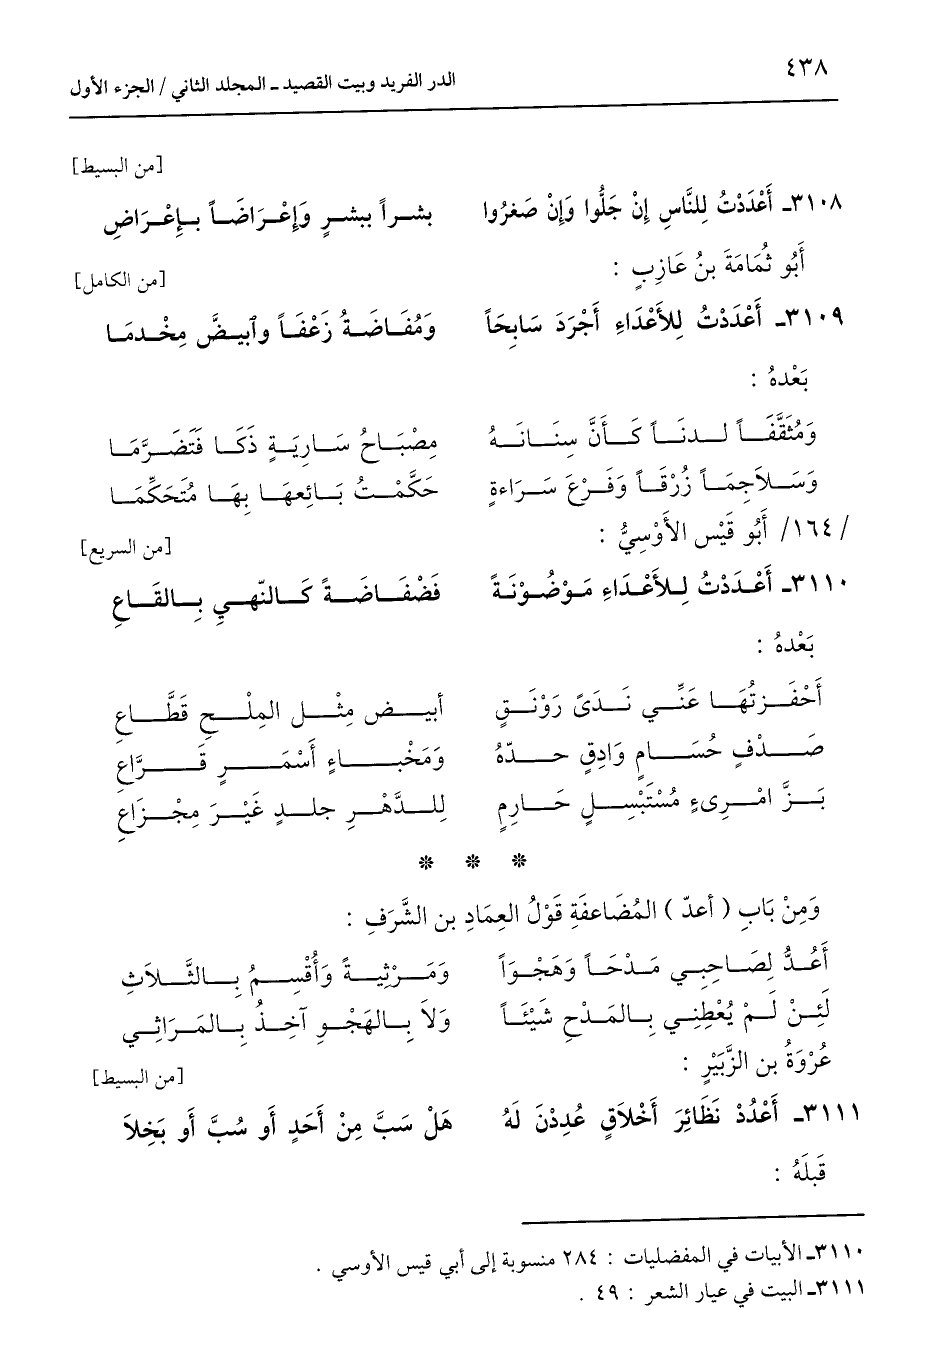 ٤٣٨
الدر الفريد وبيت القصيد ـ المجلد الثاني / الجزء الأول
[من البسيط]
٣١٠٨ـ أَعْدَدْتُ لِلنَّاسِ إِنْ جَلُّوا وَإِنْ صَغرُوا بشراً ببشرٍ وَإِعْرَاضَاً بإِعْرَاضِ
أَبُو ثُمَامَةَ بنُ عَازِبٍ :
[من الكامل]
٣١٠٩ـ أَعْدَدْتُ لِلأَعْدَاءِ أَجْرَدَ سَابِحَاً وَمُفَاضَةُ زَعْفَاً وأبيضَّ مِخْدمَا
بَعْدهُ :
وَمُثَقَّفَاً لدنَاً كَأَنَّ سِنَانَهُ مِصْبَاحُ سَارِيَةٍ ذَكَا فَتَضَرَّمَا
وَسَلاَجِمَاً زُرْقَاً وَفَرْعَ سَرَاءةٍ حَكَّمْتُ بَائِعهَا بِهَا مُتَحَكِّمَا
/١٦٤/ أَبُو قَيْس الأَوْسِيُّ :
[من السريع]
٣١١٠ـ أَعْدَدْتُ لِلأَعْدَاءِ مَوْضُوْنَةً فَضْفَاضَةً كَالنّهيِ بِالقَاعِ
بَعْدهُ :
أَحْفَزتُهَا عَنِّي نَدَىً رَوْنَقٍ أبيض مِثْلِ المِلْحِ قَطَّاعِ
صَدْفٍ حُسَامٍ وَادِقٍ حدّهُ وَمَخْبَاءٍ أَسْمَرٍ قَرَّاعِ
بَزَّ امْرِىءٍ مُسْتَبْسِلٍ حَارِمٍ لِلدَّهْرِ جلدٍ غَيْرَ مِجْزَاعِ
* * *
وَمِنْ بَابِ ( أعدّ ) المُضَاعفَةِ قَوْلُ العِمَادِ بن الشَّرَفِ :
أَعُدُّ لِصَاحِبي مَدْحَاً وَهَجْوَاً وَمَرْثِيةً وَأُقْسِمُ بِالثَّلاَثِ
لَئِنْ لَمْ يُعْطِنِي بِالمَدْحِ شَيْئَاً وَلاَ بِالهَجْوِ آخِذُ بِالمَرَاثِي
عُرْوَةُ بن الزَّبَيْرِ :
[من البسيط]
٣١١١ـ أَعْدُدْ نَظَائِرَ أَخْلاَقٍ عُدِدْنَ لَهُ هَلْ سَبَّ مِنْ أَحَدٍ أَو سُبَّ أَو بَخِلاَ
قَبلَهُ :
٣١١٠ـ الأبيات في المفضليات : ٢٨٤ منسوبة إلى أبي قيس الأوسي .
٣١١١ـ البيت في عيار الشعر : ٤٩ .